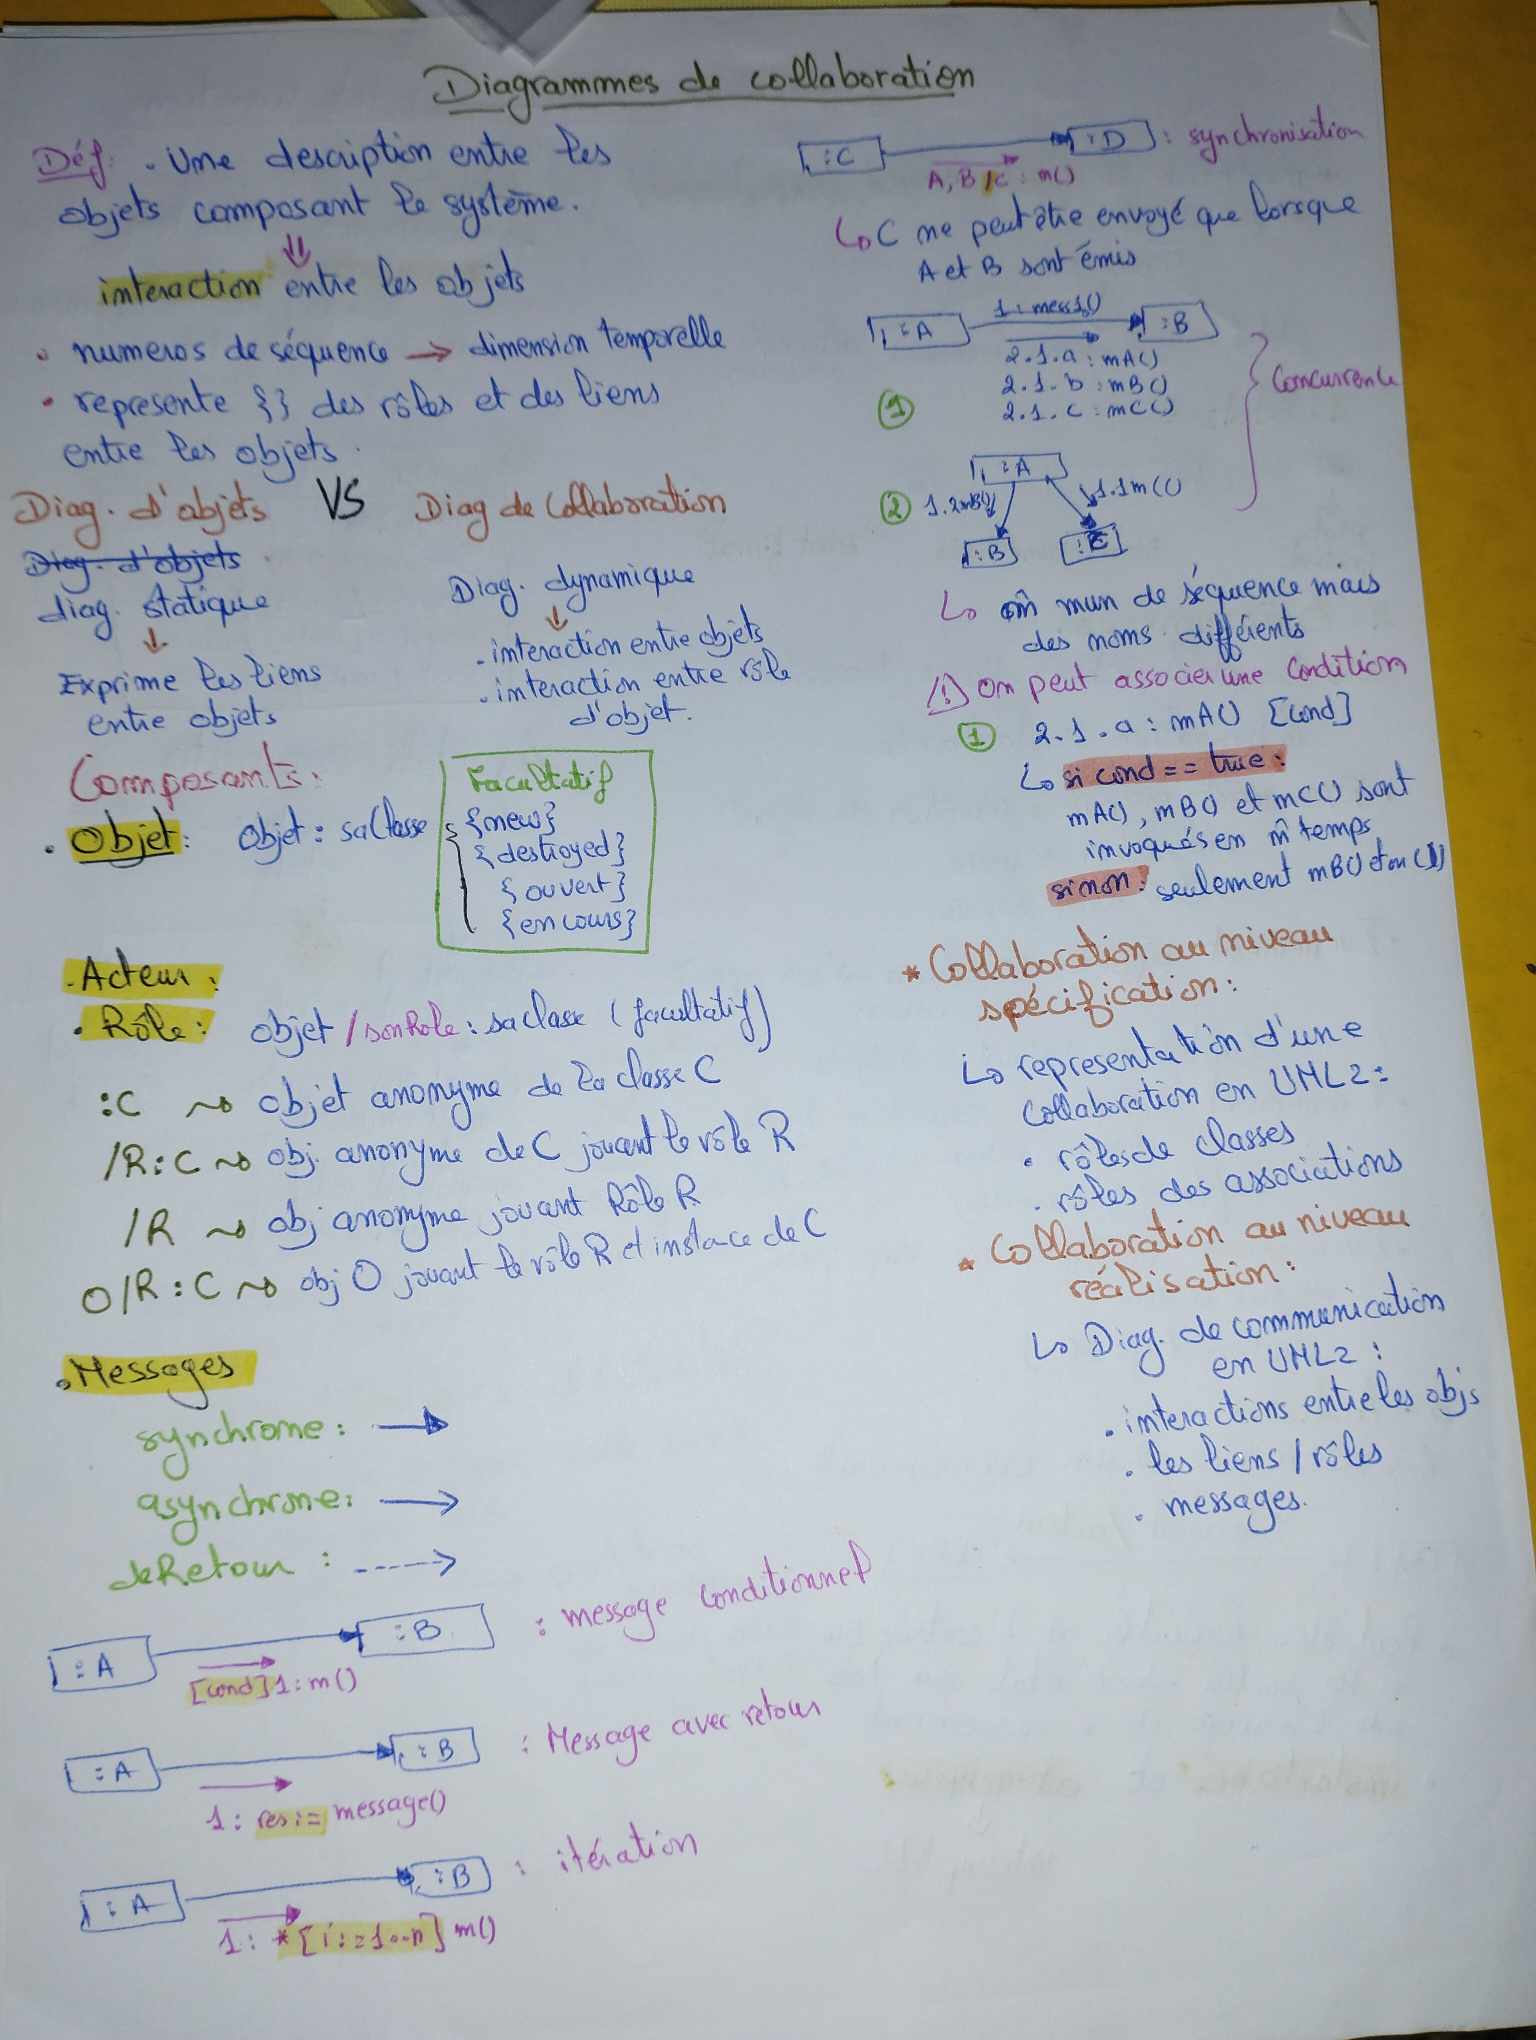 Diagrammes de collaboration
Déf: . Une description entre les
objets composant le système.
⇓
interaction entre les objets
• numeros de séquence → dimension temporelle
• represente {} des rôles et des liens
entre les objets.
Diag. d'objets VS Diag de Collaboration
Diag. d'objets
diag. statique
↓
Exprime les liens
entre objets
Diag. dynamique
↓
. interaction entre objets
. interaction entre rôle
d'objet.
Composants:
. Objet: Objet: saClasse
Facultatif
{new}
{destroyed}
{ouvert}
{en cours}
. Acteur:
. Rôle: objet /sonRole: saclasse (facultatif)
:C ~> objet anonyme de la classe C
/R:C ~> obj. anonyme de C jouant le rôle R
/R ~> obj anonyme jouant Rôle R
O/R:C ~> obj O jouant le rôle R et instace de C
. Messages
synchrone:
asynchrone:
deRetour :
:A :B : message conditionnel
[cond] 1: m()
:A :B : Message avec retour
1: res:= message()
:A :B : itération
1: *[i:=1..n] m()
:C :D : synchronisation
A, B /C : m()
↳ C ne peut être envoyé que lorsque
A et B sont émis
1: mess1()
:A :B
2.1.a : mA()
2.1.b : mB()
2.1.c : mC()
① Concurrence
:A
② 1.2mB() 1.1m C()
:B :C
↳ m̂ num de séquence mais
des noms différents
⚠ On peut associer une Condition
① 2.1.a : mA() [cond]
↳ si cond == true:
mA(), mB() et mC() sont
invoqués en m̂ temps
sinon: seulement mB() et m C()
* Collaboration au niveau
spécification:
↳ representation d'une
collaboration en UML2:
. rôles de classes
. rôles des associations
* Collaboration au niveau
réalisation:
↳ Diag. de communication
en UML2 :
. interactions entre les objs
. les liens / rôles
. messages.